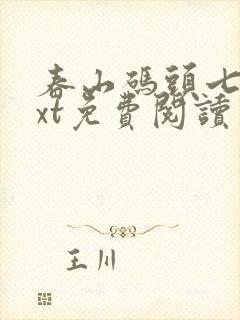 春山碼頭七
xt免費閱讀
王川